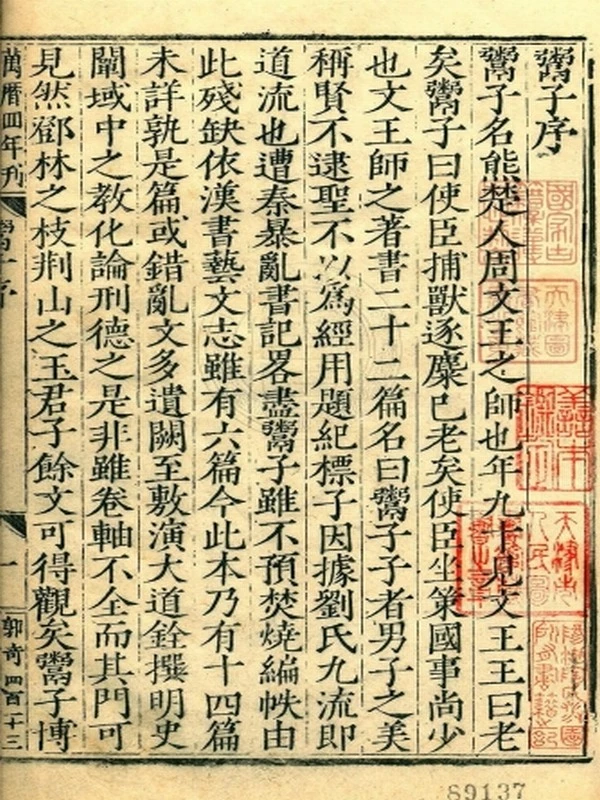 鬻子序
鬻子名熊楚人周文王之師也年九十見文王王曰老
矣鬻子曰使臣捕獸逐麋已老矣使臣坐策國事尚少
也文王師之著書二十二篇名曰鬻子子者男子之美
稱賢不逮聖不以爲經用題紀標子因據劉氏九流即
道流也遭秦暴亂書記畧盡鬻子雖不預焚燒編帙由
此殘缺依漢書藝文志雖有六篇今此本乃有十四篇
未詳孰是篇或錯亂文多遺闕至敷演大道銓撰明史
闡域中之教化論刑德之是非雖卷軸不全而其門可
見然鄧林之枝荆山之玉君子餘文可得觀矣鬻子博
萬曆四年刊
鬻子序
一
郭奇 四百二十三
89137